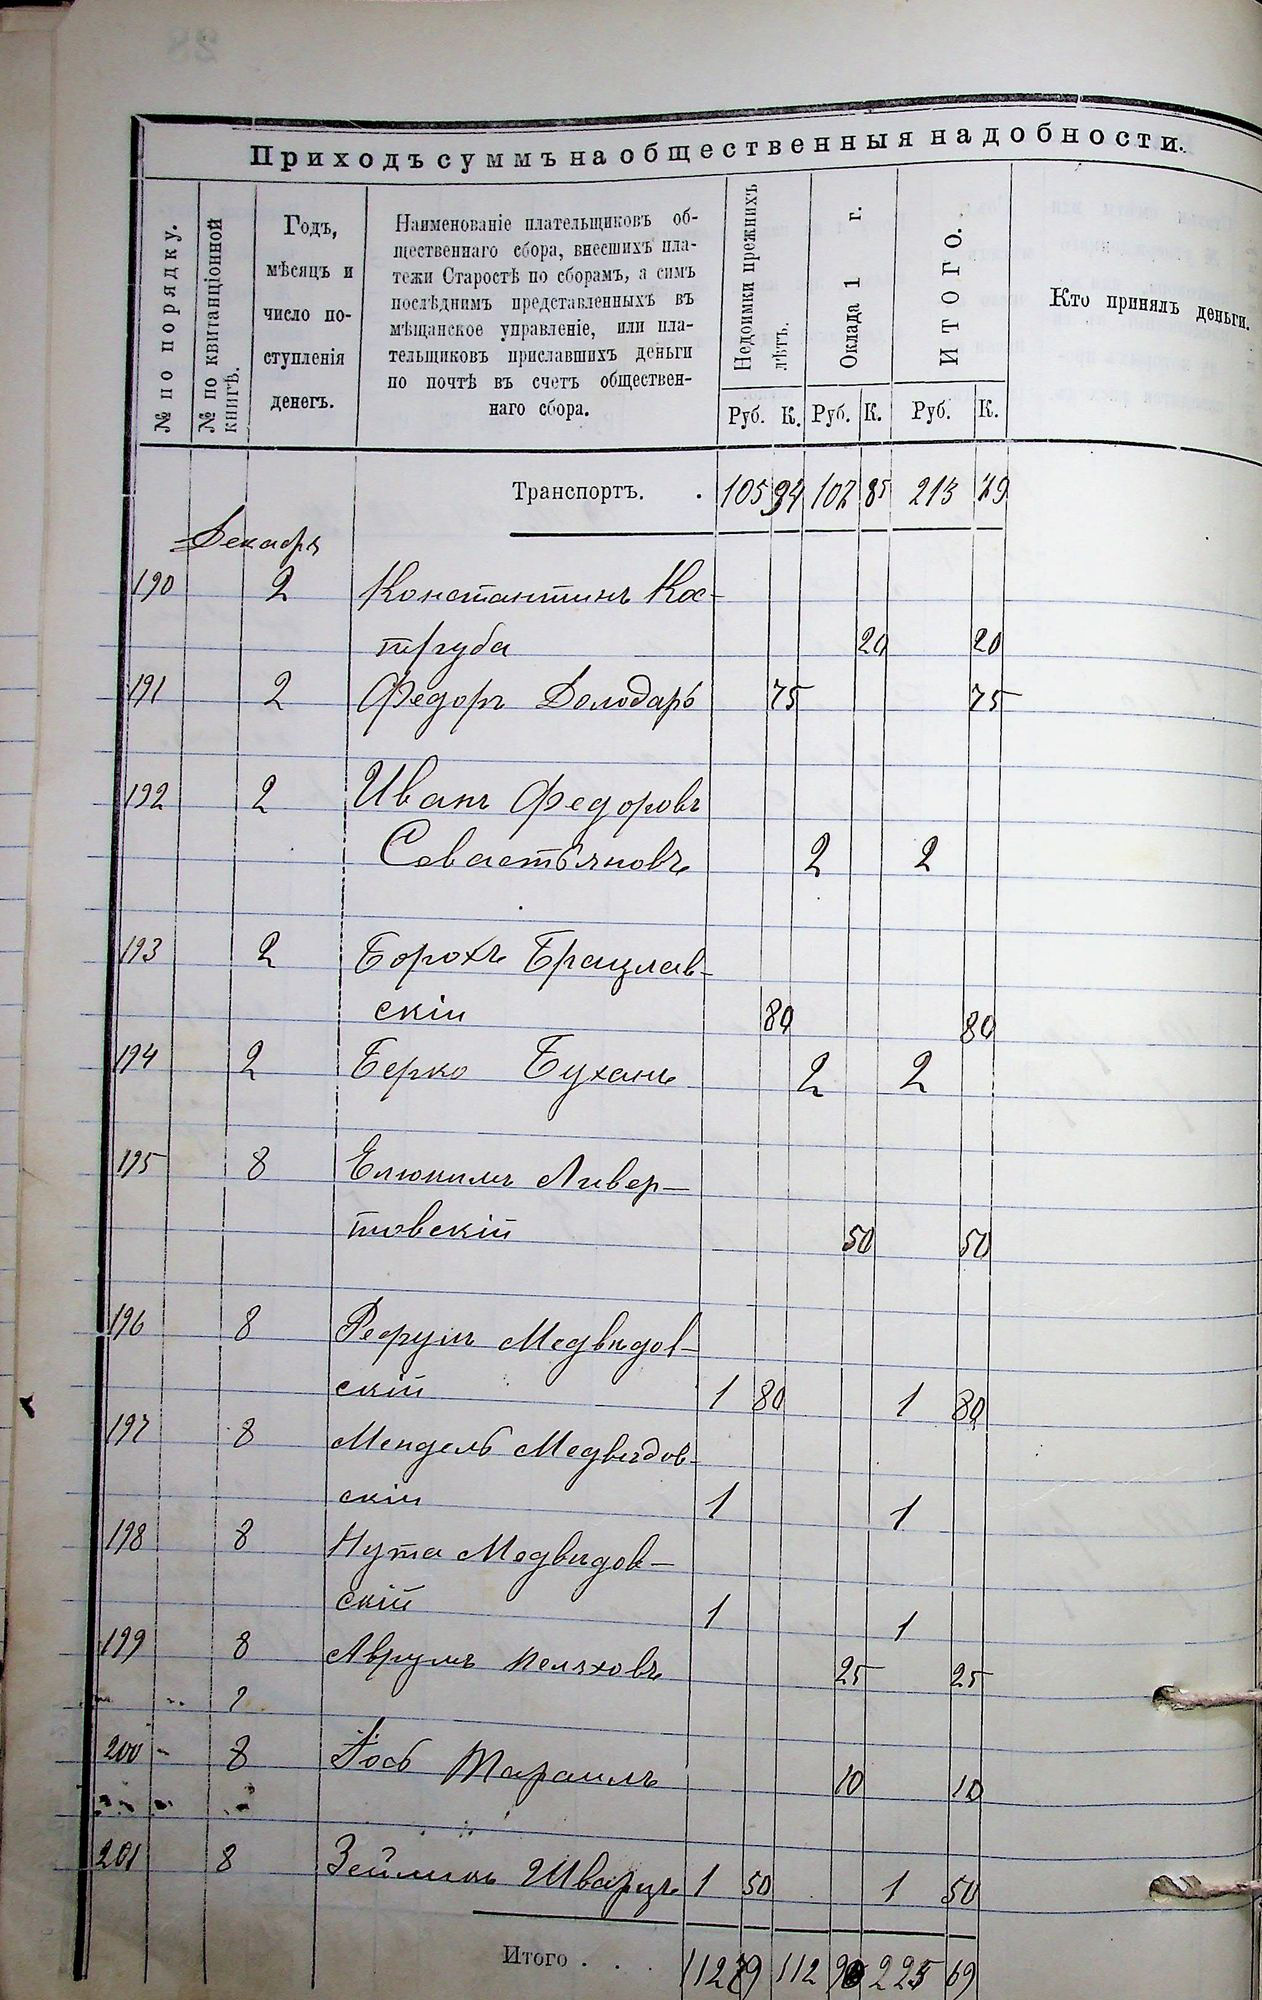 Приходъ суммъ на общественныя надобности.
№ по порядку.
№ по квитанціонной
книгѣ.
Годъ,
мѣсяцъ и
число по-
ступленія
денегъ.
Наименованіе плательщиковъ об-
щественнаго сбора, внесшихъ пла-
тежи Старостѣ по сборамъ, а симъ
послѣднимъ представленныхъ въ
мѣщанское управленіе, или пла-
тельщиковъ приславшихъ деньги
по почтѣ въ счетъ обществен-
наго сбора.
Недоимки прежнихъ
лѣтъ.
Оклада 1 г.
ИТОГО.
Кто принялъ деньги.
Руб. К. Руб. К. Руб. К.
Транспортъ. . 105 94 102 85 213 79
Декабрь
190 2 Константинъ Кос-
труба 20 20
191 2 Федоръ Володарь 75 75
192 2 Иванъ Федоровъ
Севастьяновъ 2 2
193 2 Борохъ Брацлав-
скій 80 80
194 2 Берко Буханъ 2 2
195 8 Ливер-
товскій 50 50
196 8 Медвѣдов-
скій 1 80 1 80
197 8 Мендель Медвѣдов-
скій 1 1
198 8 Нута Медвѣдов-
скій 1 1
199 8 Аврумъ 25 25
200 8 10 10
201 8 Зейликъ Шварцъ 1 50 1 50
Итого . . . 112 79 112 90 225 69